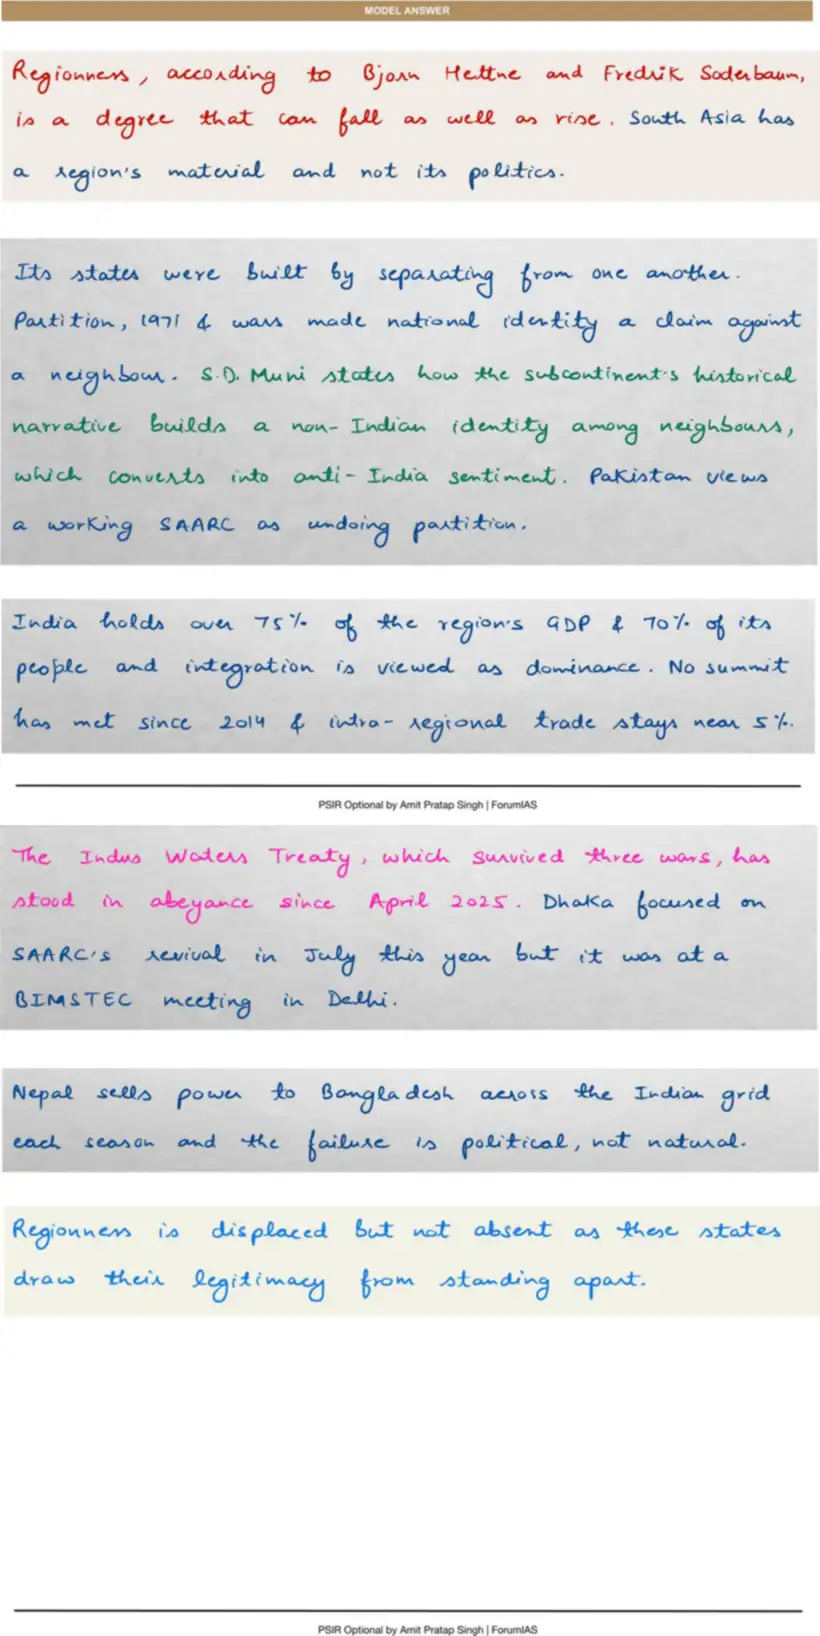 MODEL ANSWER
Regionness, according to Bjorn Hettne and Fredrik Soderbaum,
is a degree that can fall as well as rise. South Asia has
a region's material and not its politics.
Its states were built by separating from one another.
Partition, 1971 & wars made national identity a claim against
a neighbour. S.D. Muni states how the subcontinent's historical
narrative builds a non-Indian identity among neighbours,
which converts into anti-India sentiment. Pakistan views
a working SAARC as undoing partition.
India holds over 75% of the region's GDP & 70% of its
people and integration is viewed as dominance. No summit
has met since 2014 & intra-regional trade stays near 5%.
PSIR Optional by Amit Pratap Singh | ForumIAS
The Indus Waters Treaty, which survived three wars, has
stood in abeyance since April 2025. Dhaka focused on
SAARC's revival in July this year but it was at a
BIMSTEC meeting in Delhi.
Nepal sells power to Bangladesh across the Indian grid
each season and the failure is political, not natural.
Regionness is displaced but not absent as these states
draw their legitimacy from standing apart.
PSIR Optional by Amit Pratap Singh | ForumIAS